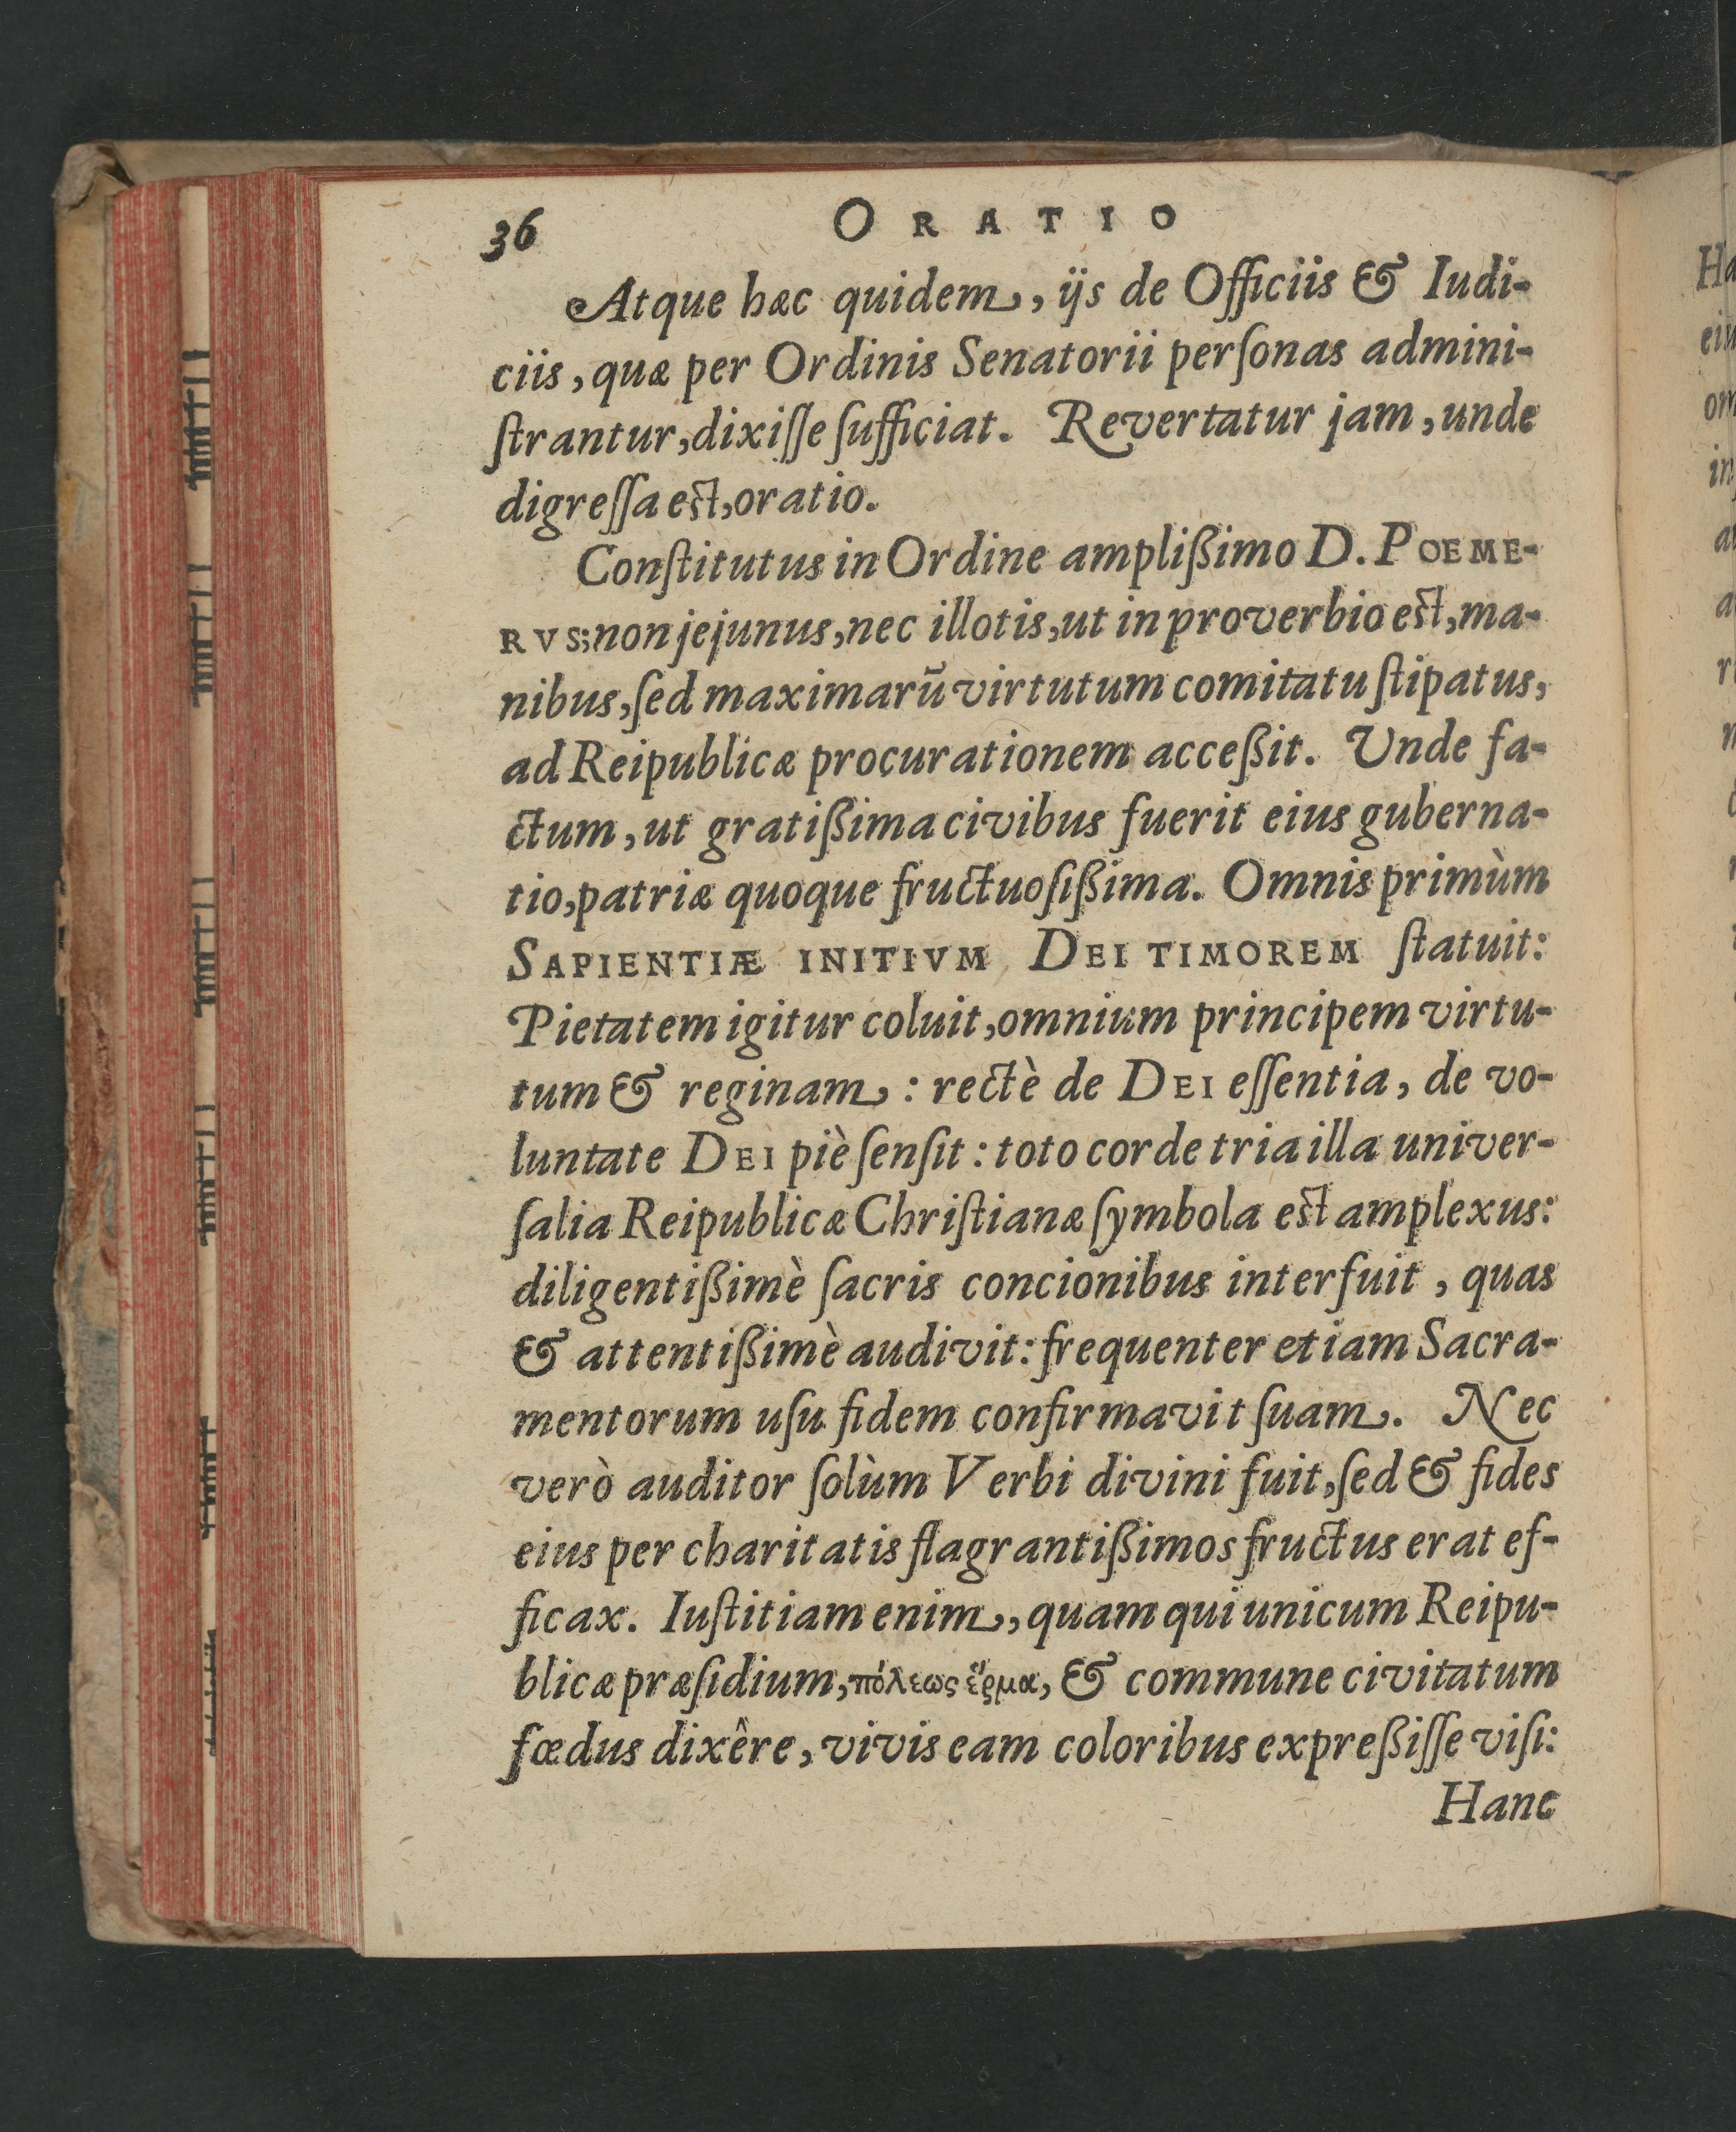 36
ORATIO
Atque hæc quidem, ijs de Officiis & Iudi-
ciis, quæ per Ordinis Senatorii perſonas admini-
ſtrantur, dixiſſe ſufficiat. Revertatur jam, unde
digreſſa est, oratio.
Conſtitutus in Ordine ampliſßimo D. POEME-
RVS; non jejunus, nec illotis, ut in proverbio est, ma-
nibus, ſed maximarũ virtutum comitatu ſtipatus,
ad Reipublicæ procurationem acceßit. Unde fa-
ctum, ut gratißima civibus fuerit eius guberna-
tio, patriæ quoque fructuoſißima. Omnis primùm
SAPIENTIÆ INITIVM DEI TIMOREM ſtatuit:
Pietatem igitur coluit, omnium principem virtu-
tum & reginam: rectè de DEI eſſentia, de vo-
luntate DEI piè ſenſit: toto corde tria illa univer-
ſalia Reipublicæ Chriſtianæ ſymbola est amplexus:
diligentißimè ſacris concionibus interfuit, quas
& attentißimè audivit: frequenter etiam Sacra-
mentorum uſu fidem confirmavit ſuam. Nec
verò auditor ſolùm Verbi divini fuit, ſed & fides
eius per charitatis flagrantißimos fructus erat ef-
ficax. Iuſtitiam enim, quam qui unicum Reipu-
blicæ præſidium, πόλεως ἕρμα, & commune civitatum
fœdus dixêre, vivis eam coloribus expreßiſſe viſi:
Hanc
Ha